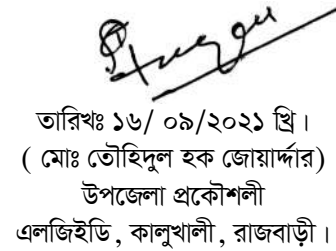 তারিখঃ ১৬/ ০৯/২০২১ খ্রি।
( মোঃ তৌহিদুল হক জোয়ার্দ্দার)
উপজেলা প্রকৌশলী
এলজিইডি, কালুখালী, রাজবাড়ী।